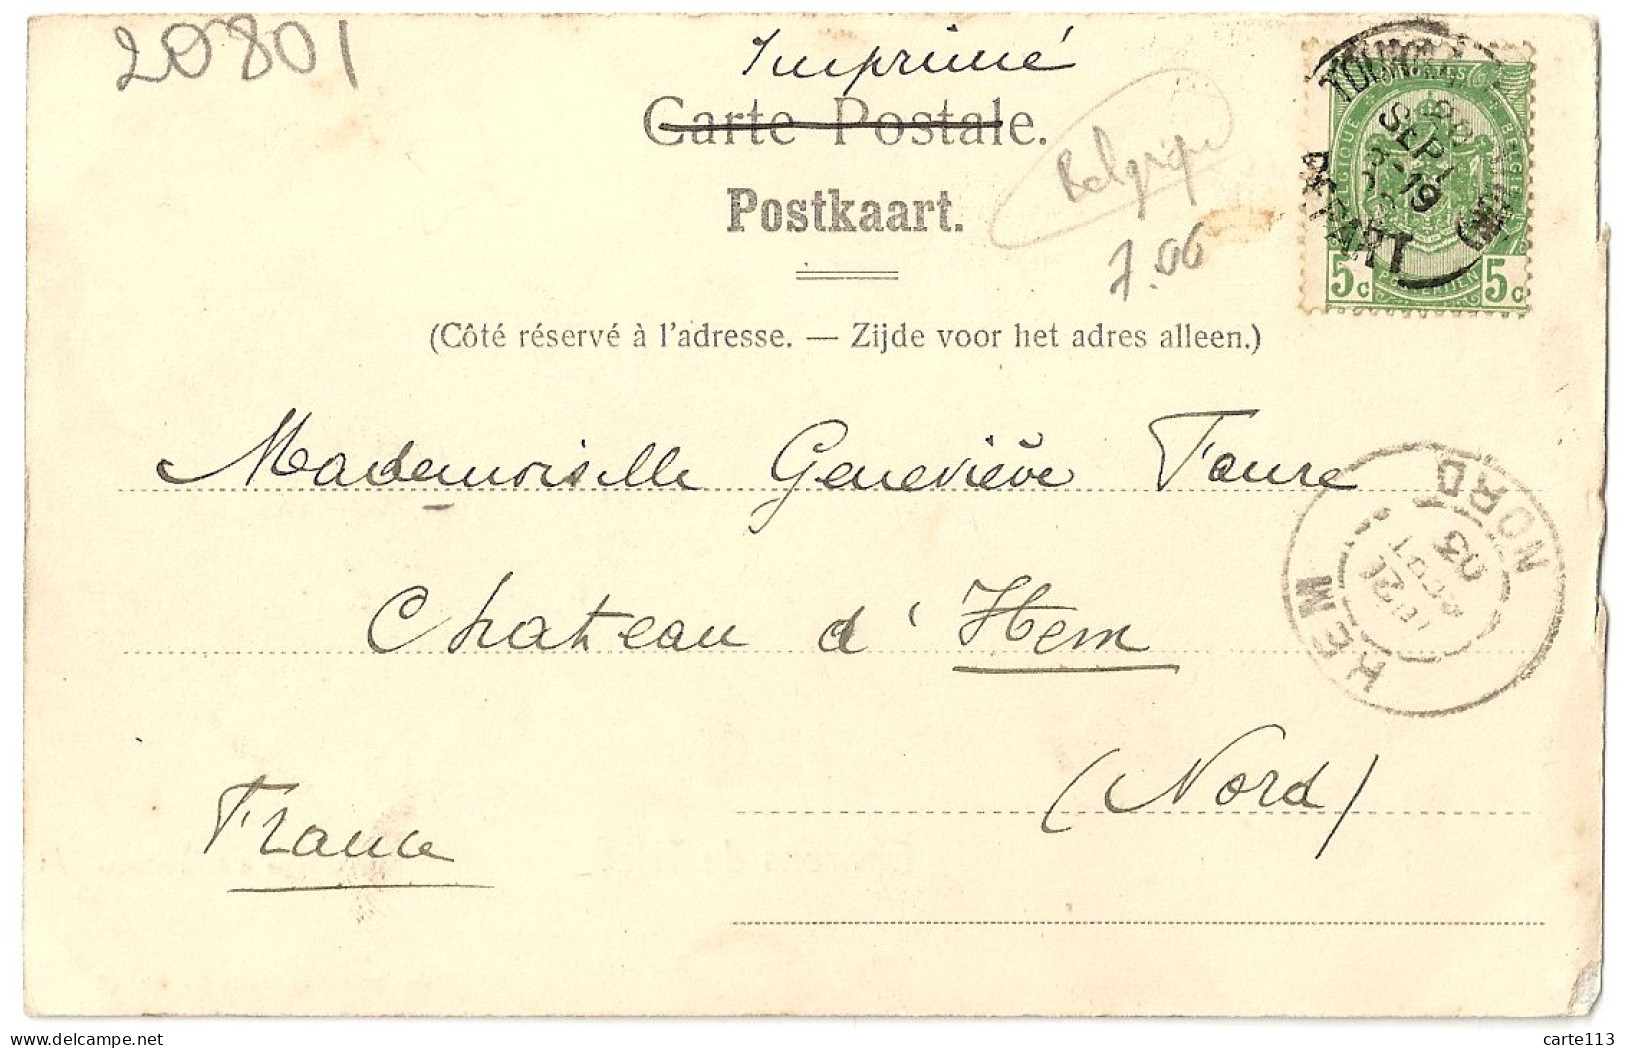 20801
Imprimé
Carte Postale.
Belgique
Postkaart.
7.06
TOURNAI
SEPT
19
DEPART
BELGIQUE BELGIE
5c 5c
(Côté réservé à l'adresse. — Zijde voor het adres alleen.)
Mademoiselle Geneviève Faure
HEM NORD
03
Chateau d'Hem
(Nord)
France
delcampe.net
carte113